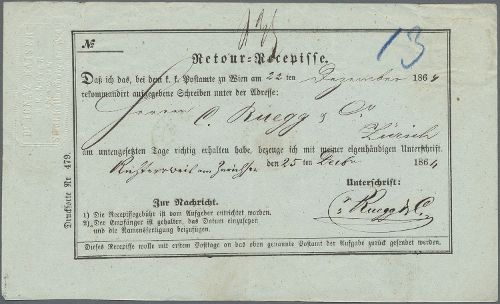 13
№
Retour-Recepisse.
Daß ich das, bei dem k. k. Postamte zu Wien am 22 ten Dezember 1864
rekommandirt aufgegebene Schreiben unter der Adresse:
Herrn C. Ruegg & Co
Zürich
am untengesetzten Tage richtig erhalten habe, bezeuge ich mit meiner eigenhändigen Unterschrift.
am den 25 ten 1864
Unterschrift:
Zur Nachricht.
C. Ruegg & Co.
1) Die Recepissegebühr ist vom Aufgeber entrichtet worden.
2) Der Empfänger ist gehalten, das Datum einzusetzen
und die Namensfertigung beizufügen.
Dieses Recepisse wolle mit erstem Posttage an das oben genannte Postamt der Aufgabe zurück gesendet werden.
Drucksorte Nr. 479.